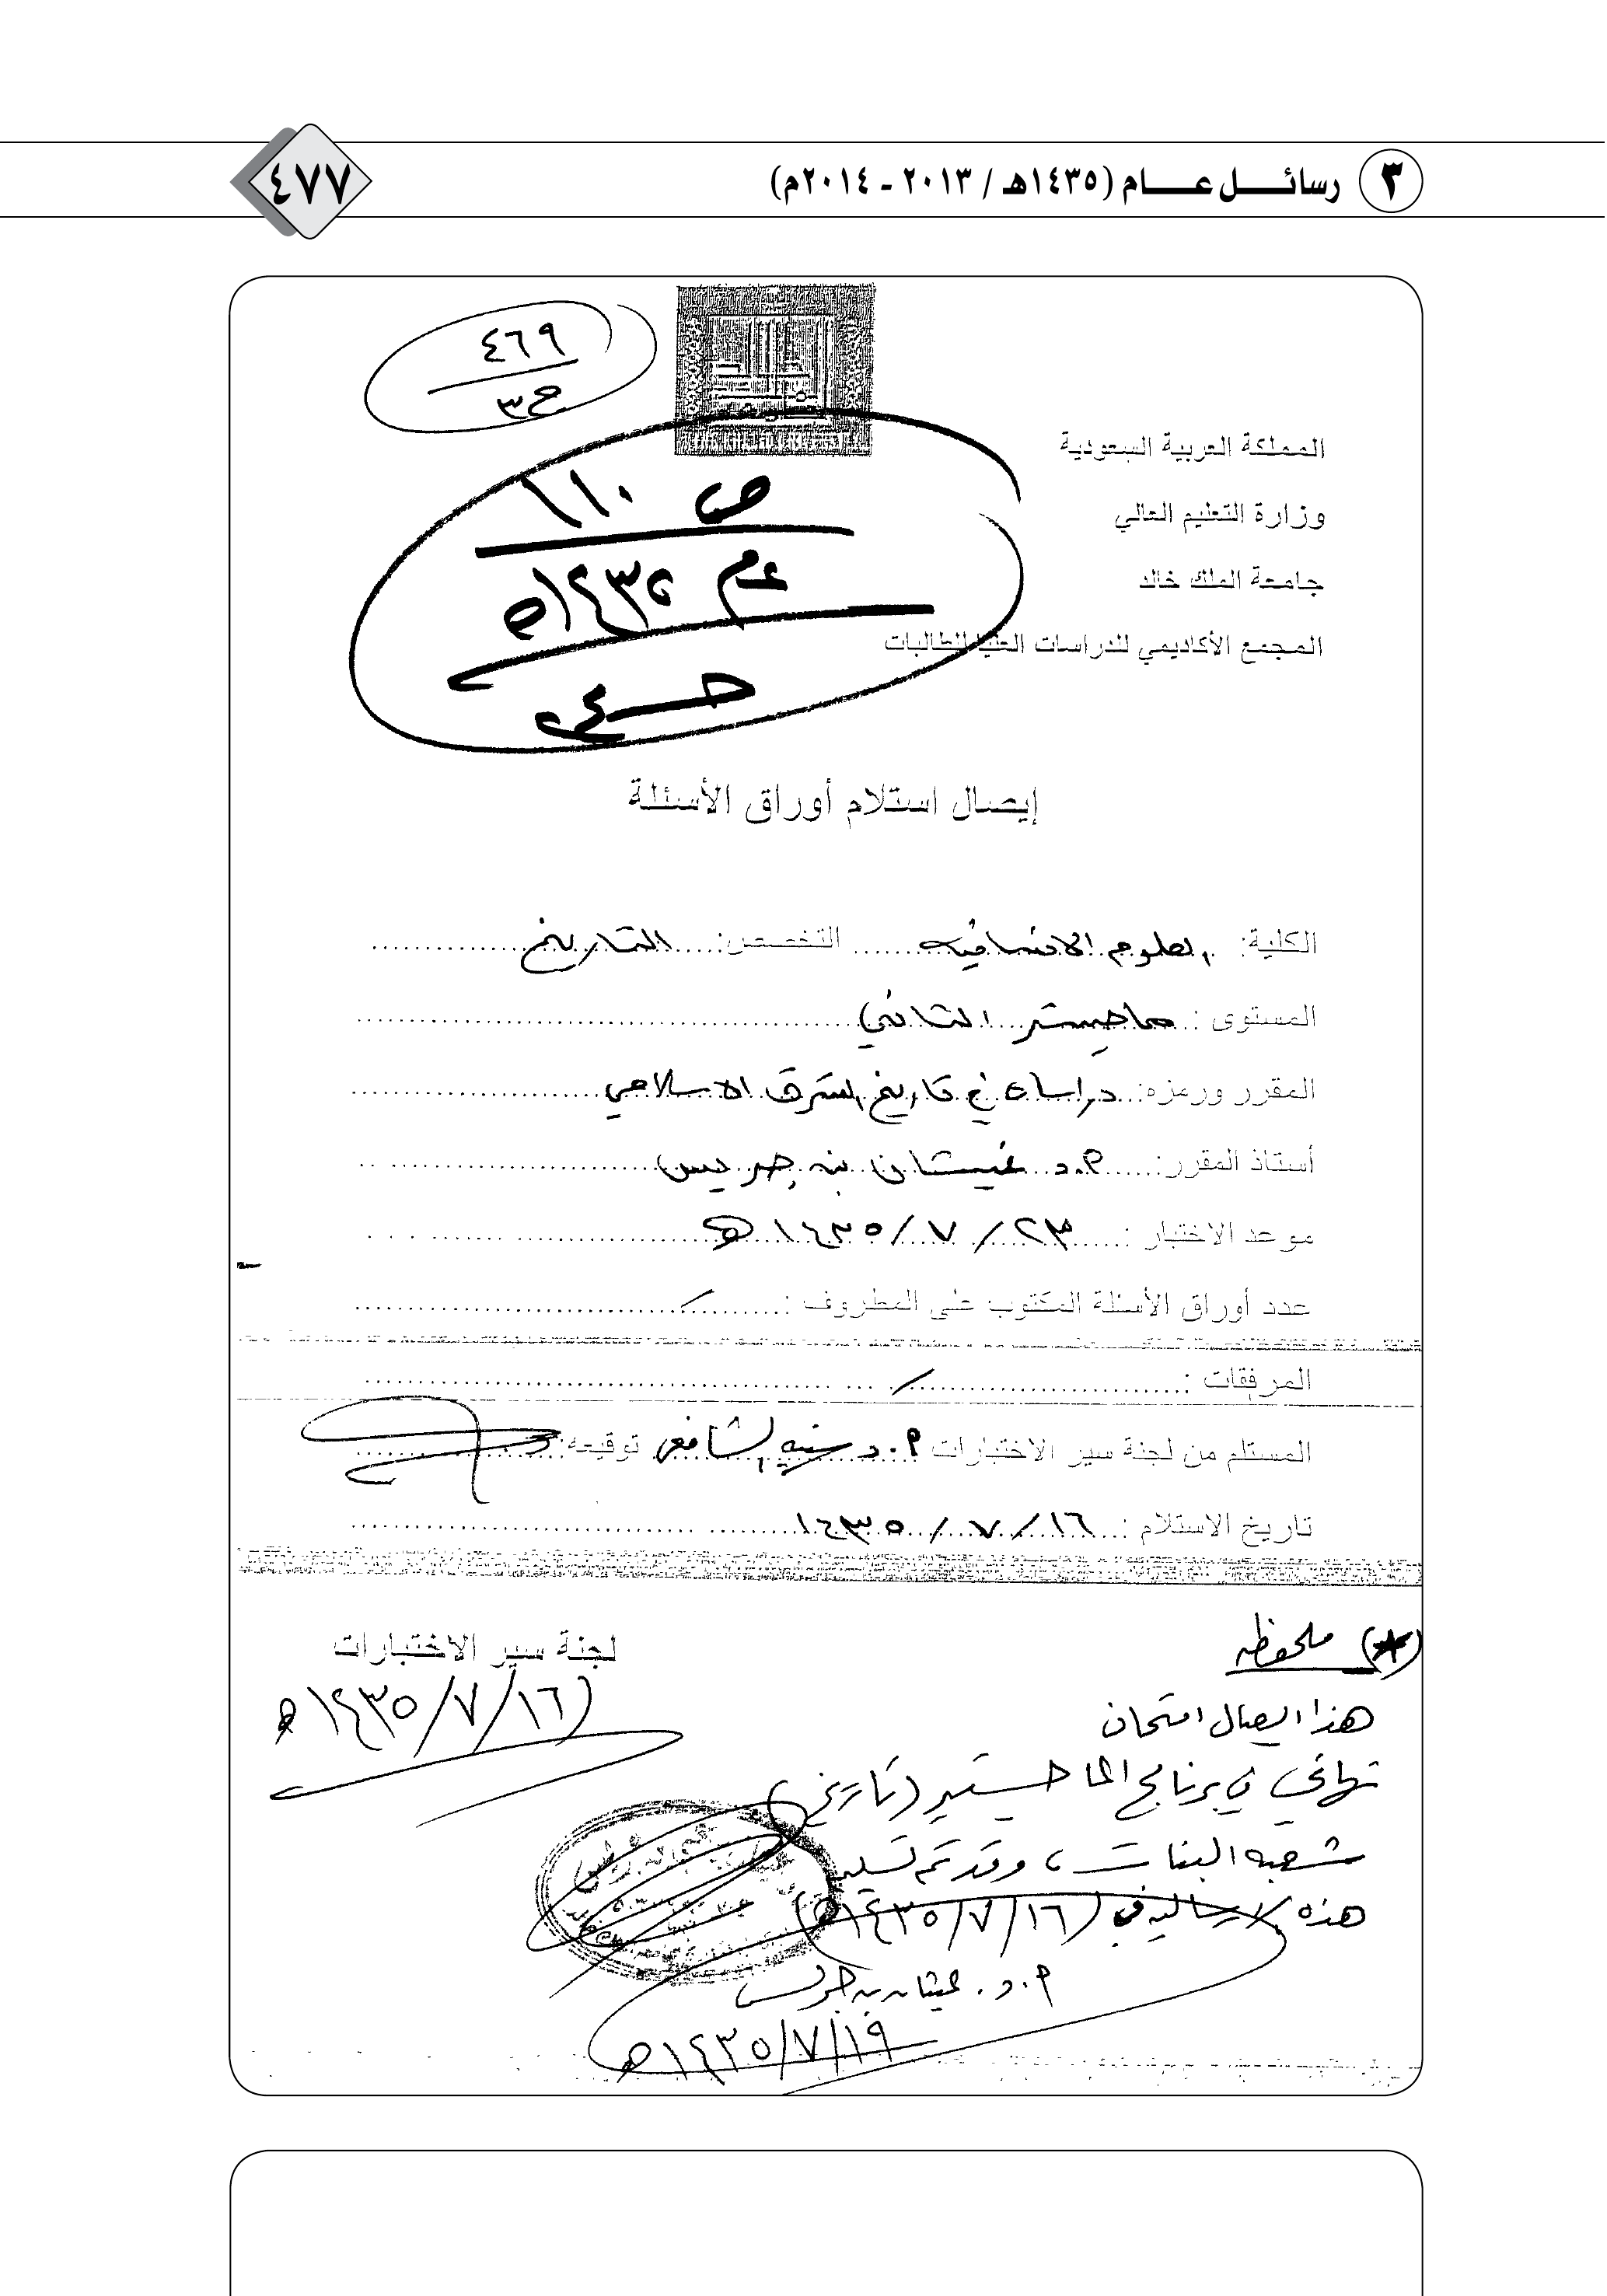 ٣ رسائل عام (١٤٣٥هـ / ٢٠١٣ - ٢٠١٤م)
٤٧٧
٤٦٩
ج٣
المملكة العربية السعودية
وزارة التعليم العالي
جامعة الملك خالد
المجمع الأكاديمي للدراسات العليا للطالبات
ص ١١٠
عام ١٤٣٥هـ
إيصال استلام أوراق الأسئلة
الكلية: العلوم الانسانيه التخصص: التاريخ
المستوى : ماجستر الثاني
المقرر ورمزه: دراسات في تاريخ المشرق الاسلامي
أستاذ المقرر: أ.د غيثان بن جريس
موعد الاختبار : ٢٣ / ٧ / ١٤٣٥ هـ
عدد أوراق الأسئلة المكتوب على المظروف : /
المرفقات : /
المستلم من لجنة سير الاختبارات أ.د الشافعي توقيعه:
تاريخ الاستلام : ١٦ / ٧ / ١٤٣٥
لجنة سير الاختبارات
١٦ / ٧ / ١٤٣٥ هـ
(*) ملحوظه
هذا ايصال امتحان
نهائي في برنامج الماجستير (تاريخ)
شعبه البنات ، وقد تم تسليم
هذه في (١٦ / ٧ / ١٤٣٥هـ)
أ.د. غيثان بن جريس
١٩ / ٧ / ١٤٣٥ هـ